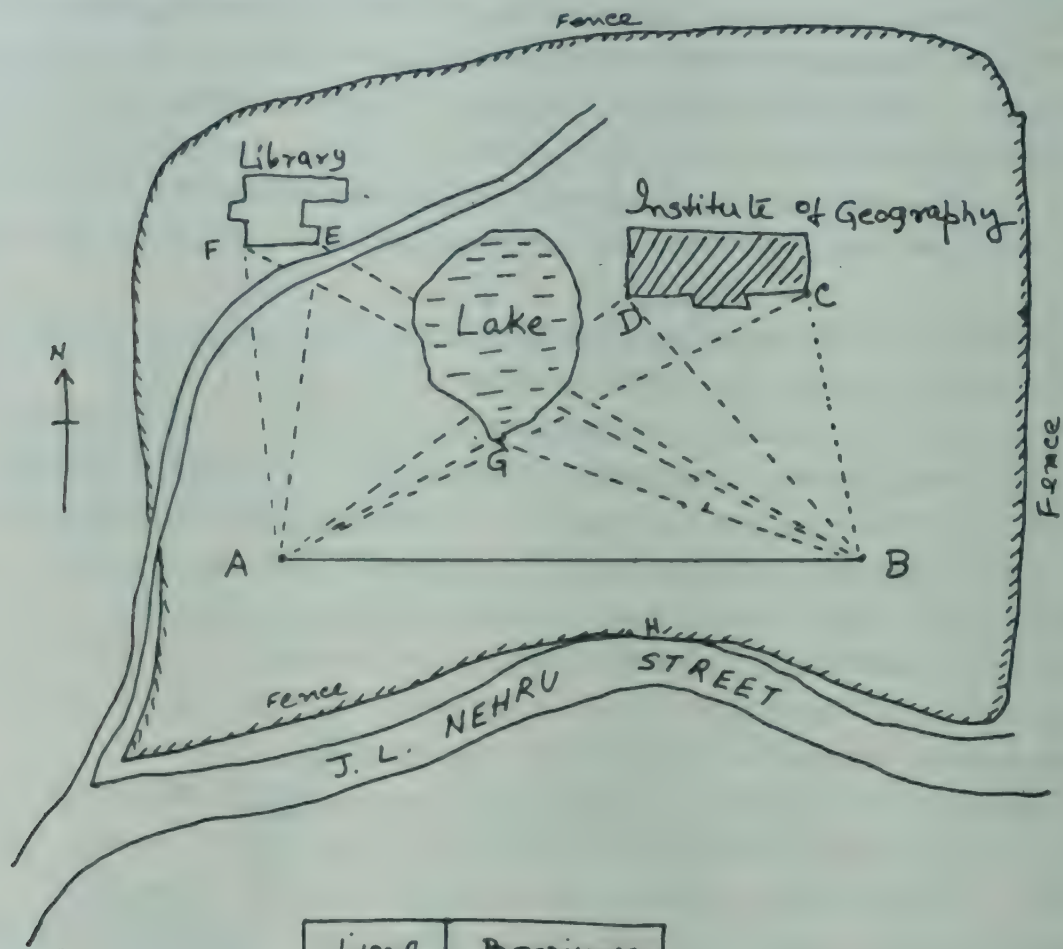 Fence
Library
Institute of Geography
F
E
N
Lake
D
C
G
Fence
A
B
H
Fence
J. L. NEHRU STREET